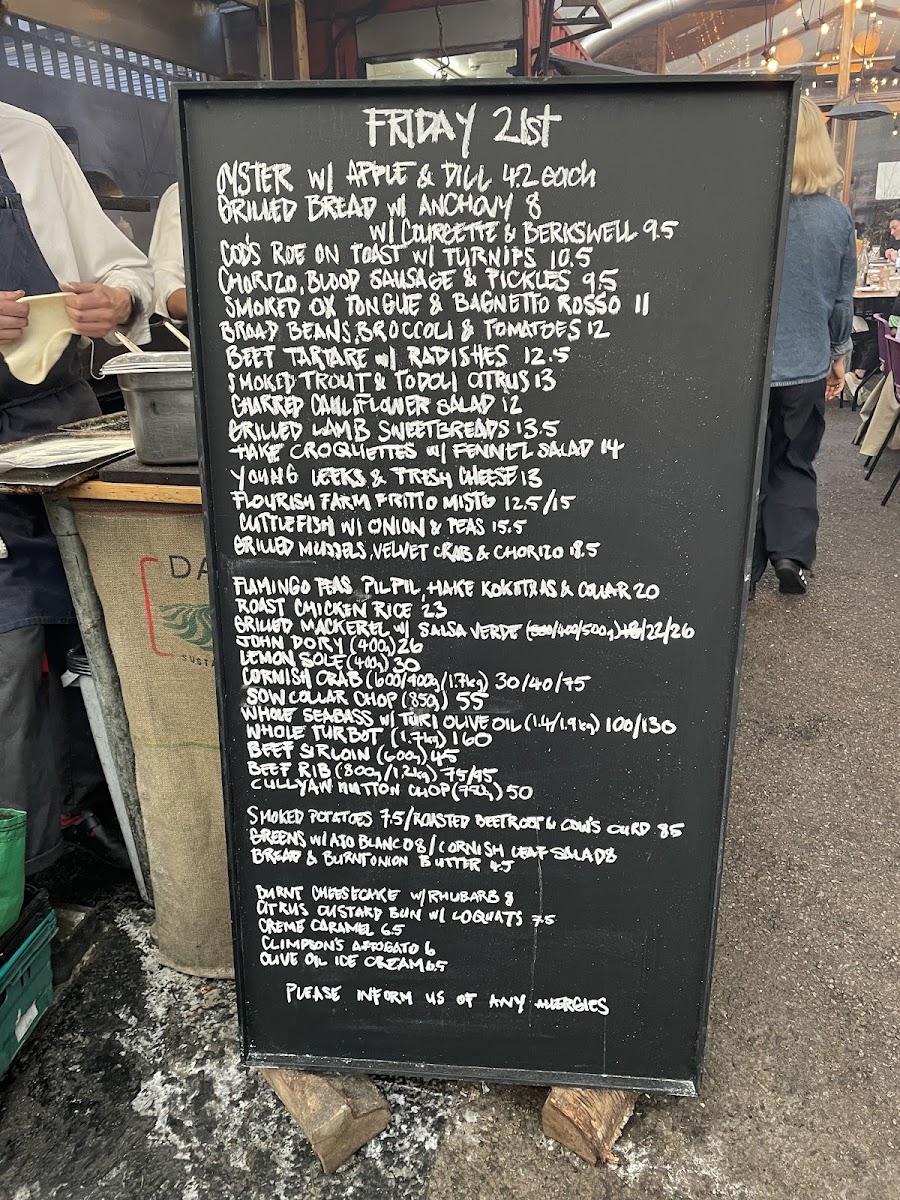 FRIDAY 21st
OYSTER W/ APPLE & DILL 4.2 each
GRILLED BREAD W/ ANCHOVY 8
W/ COURGETTE & BERKSWELL 9.5
COD'S ROE ON TOAST W/ TURNIPS 10.5
CHORIZO, BLOOD SAUSAGE & PICKLES 9.5
SMOKED OX TONGUE & BAGNETTO ROSSO 11
BROAD BEANS, BROCCOLI & TOMATOES 12
BEEF TARTARE W/ RADISHES 12.5
SMOKED TROUT & TODOLI CITRUS 13
CHARRED CAULIFLOWER SALAD 12
GRILLED LAMB SWEETBREADS 13.5
HAKE CROQUETTES W/ FENNEL SALAD 14
YOUNG LEEKS & FRESH CHEESE 13
FLOURISH FARM FRITTO MISTO 12.5/15
CUTTLEFISH W/ ONION & PEAS 15.5
GRILLED MUSSELS, VELVET CRAB & CHORIZO 18.5
FLAMINGO PEAS PILPIL, HAKE KOKOTXAS & COLLAR 20
ROAST CHICKEN RICE 23
GRILLED MACKEREL W/ SALSA VERDE (300/400/500g) 18/22/26
JOHN DORY (400g) 26
LEMON SOLE (400g) 30
CORNISH CRAB (600/900g/1.7kg) 30/40/75
SOW COLLAR CHOP (850g) 55
WHOLE SEABASS W/ TURI OLIVE OIL (1.4/1.9kg) 100/130
WHOLE TURBOT (1.7kg) 160
BEEF SIRLOIN (600g) 45
BEEF RIB (800g/1.2kg) 75/95
CULLYAW MUTTON CHOP 50
SMOKED POTATOES 7.5/ROASTED BEETROOT & COW'S CURD 8.5
GREENS W/ AJO BLANCO 8/CORNISH LEAF SALAD 8
BREAD & BURNT ONION BUTTER 4.5
BURNT CHEESECAKE W/ RHUBARB 8
CITRUS CUSTARD BUN W/ LOQUATS 7.5
CREME CARAMEL 6.5
CLIMPSON'S AFFOGATO 6
OLIVE OIL ICE CREAM 6.5
PLEASE INFORM US OF ANY ALLERGIES
DA